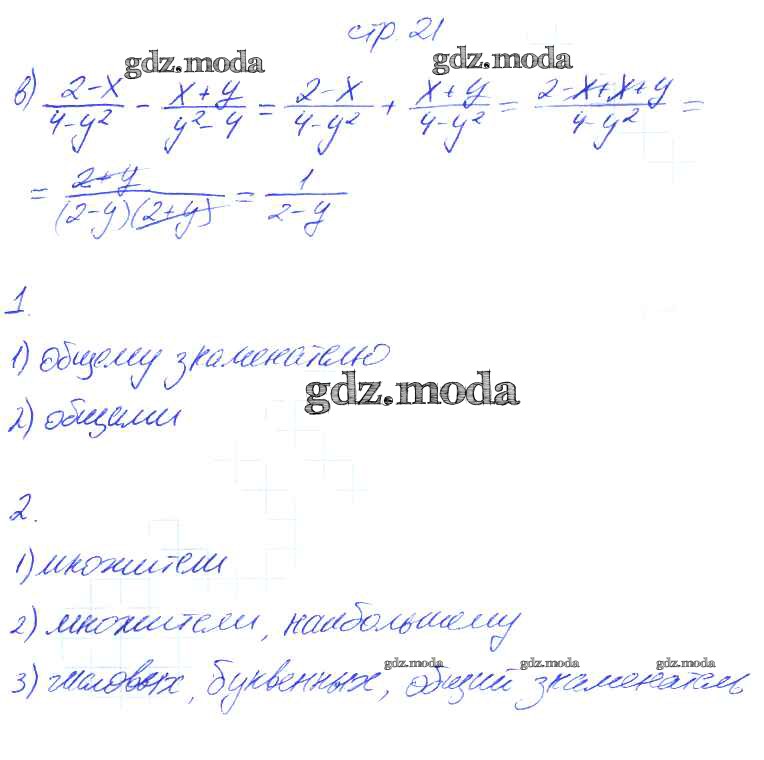 стр. 21
gdz.moda gdz.moda
в) (2-x)/(4-y²) - (x+y)/(y²-4) = (2-x)/(4-y²) + (x+y)/(4-y²) = (2-x+x+y)/(4-y²) =
= (2+y)/((2-y)(2+y)) = 1/(2-y)
1.
1) общему знаменателю
gdz.moda
2) общими
2.
1) множители
2) множители, наибольшему
gdz.moda gdz.moda gdz.moda
3) числовых, буквенных, общий знаменатель